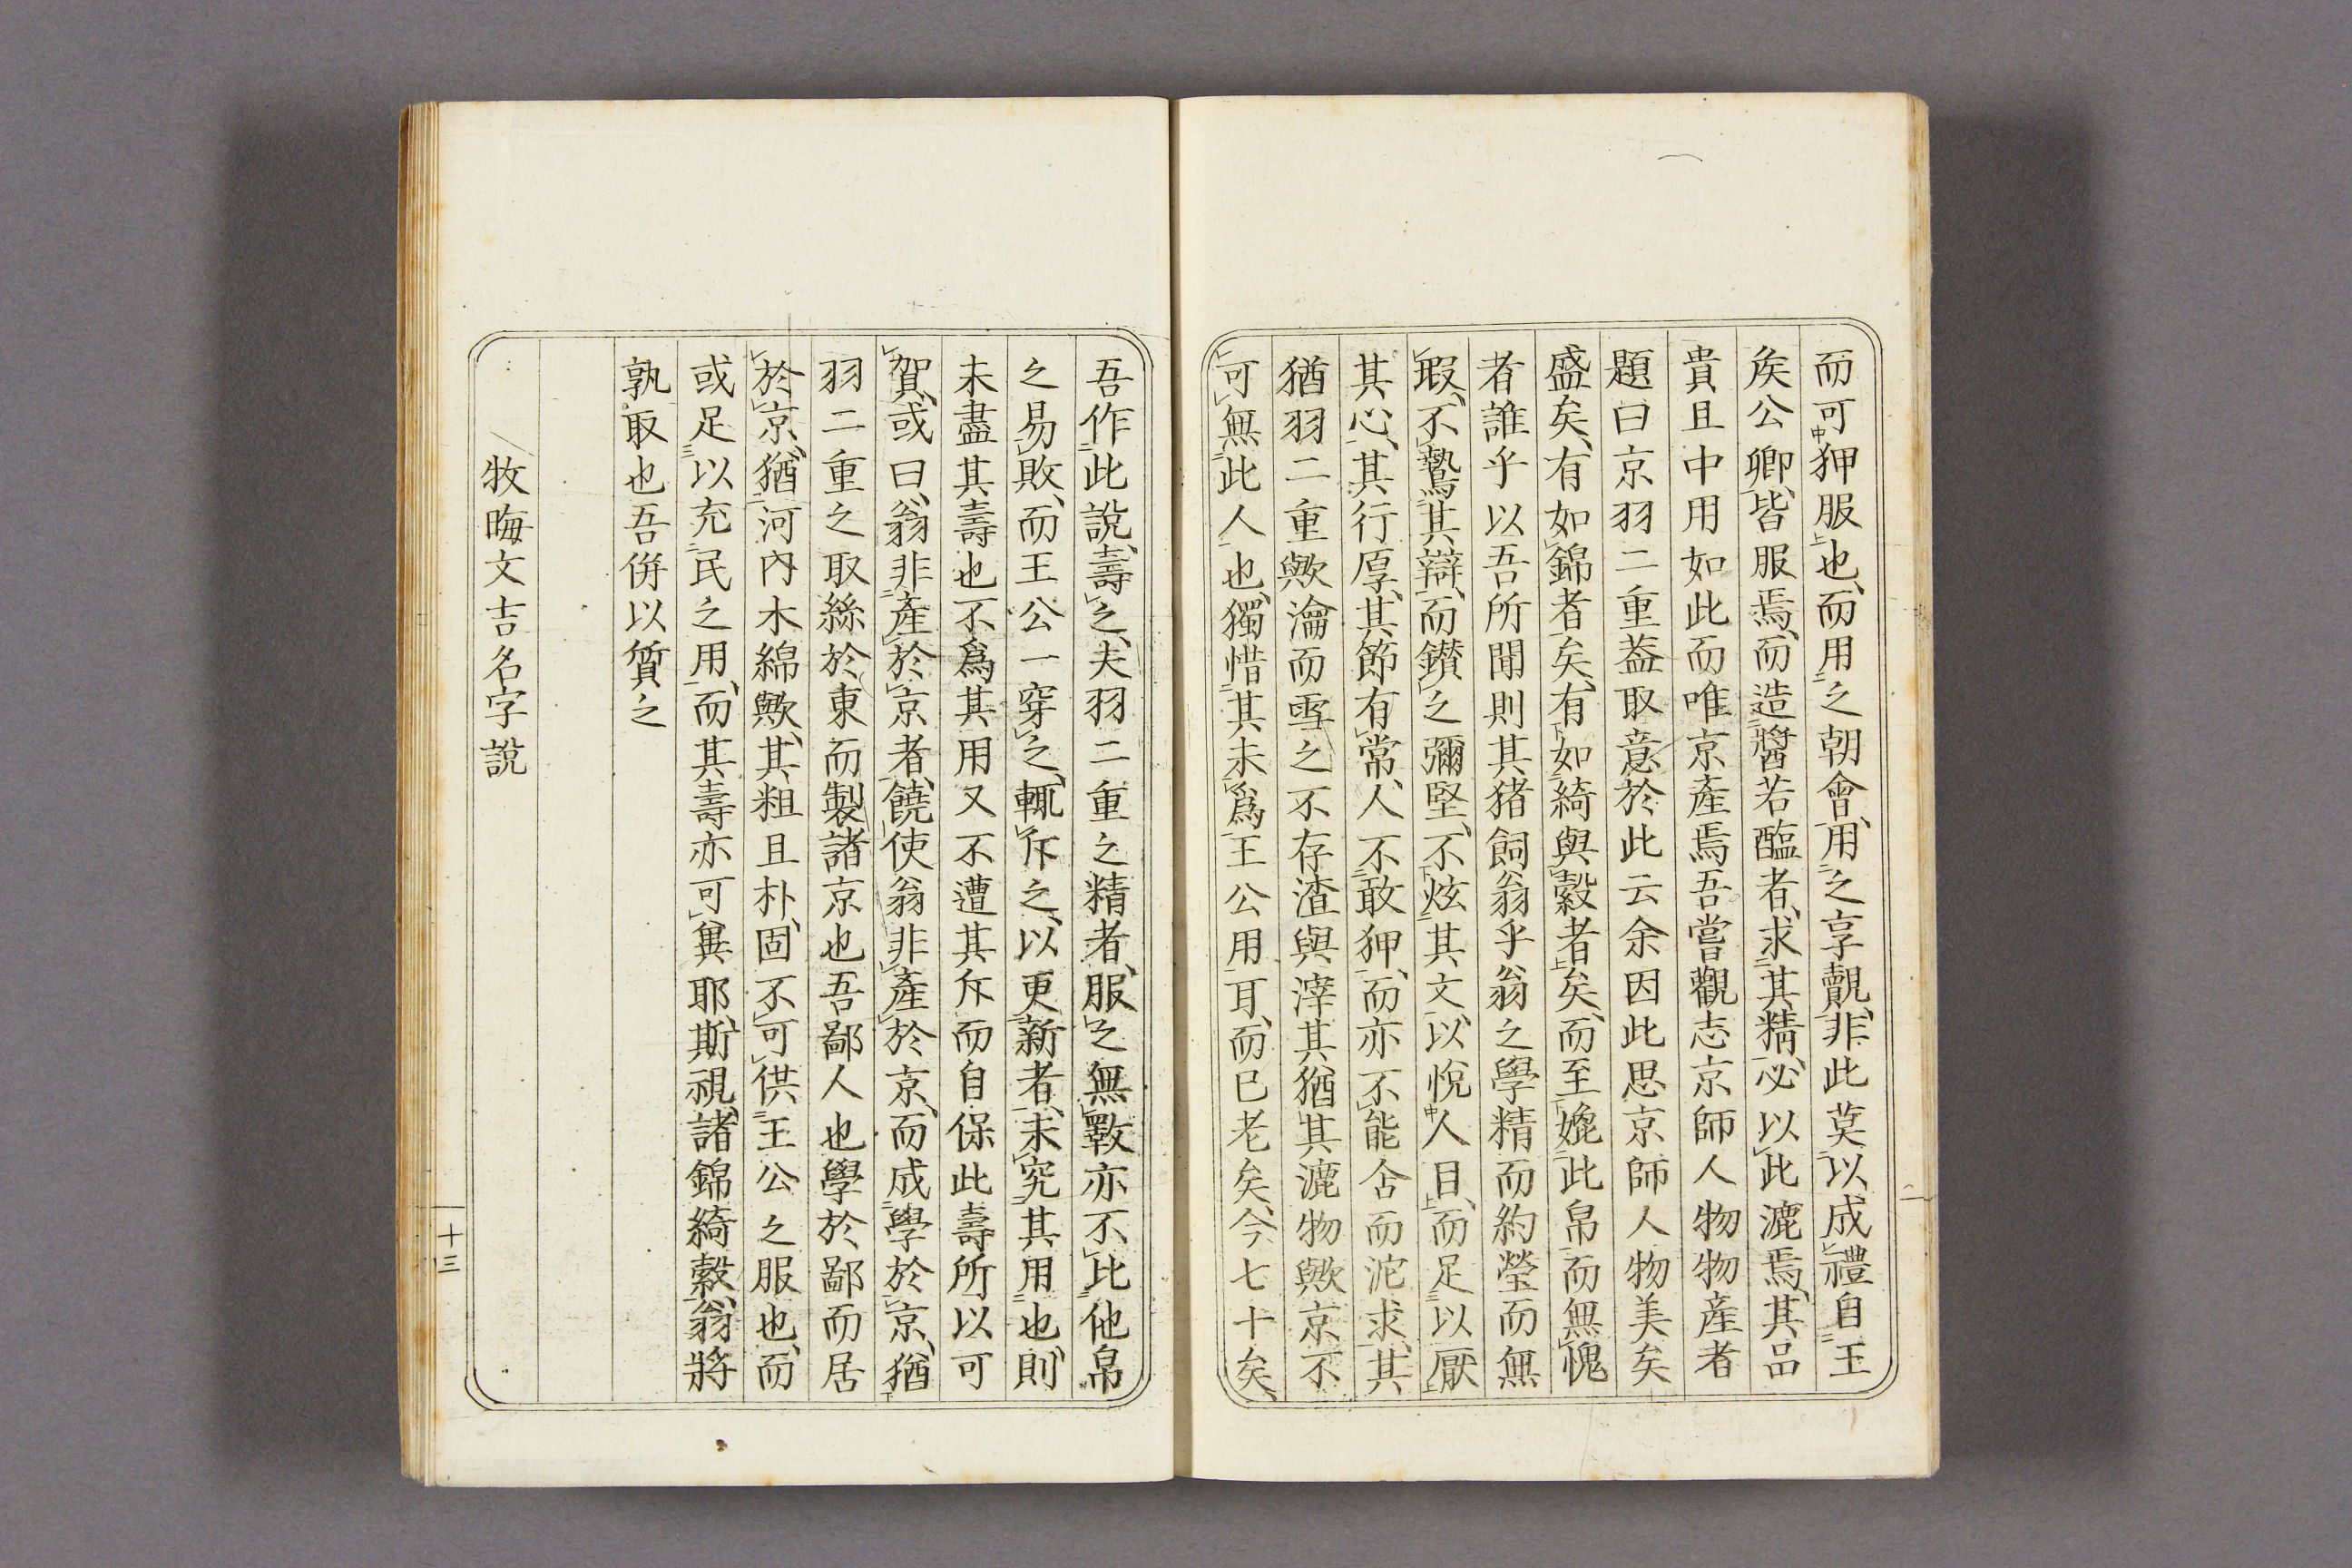 而可狎服也、而用之朝會、用之享覿、非此莫以成禮自王
矦公卿、皆服焉、而造醬若醢者、求其精、必以此漉焉、其品
貴且中用如此而唯京產焉吾嘗觀志京師人物物産者
題曰京羽二重葢取意於此云余因此思京師人物美矣
盛矣、有如錦者矣、有如綺與縠者矣、而至媲此帛而無愧
者誰乎以吾所聞則其猪飼翁乎翁之學精而約瑩而無
瑕、不鶩其辯、而鑚之彌堅、不炫其文、以悅人目、而足以厭
其心、其行厚、其節有常、人不敢狎、而亦不能舎而沱求、其
猶羽二重歟瀹而雪之不存渣與滓其猶其漉物歟京不
可無此人也、獨惜其未爲王公用耳、而已老矣、今七十矣、
吾作此說、壽之、夫羽二重之精者、服之無斁亦不比他帛
之易敗、而王公一穿之、輒斥之、以更新者、未究其用也、則
未盡其壽也不爲其用又不遭其斥而自保此壽所以可
賀、或曰、翁非產於京者、饒使翁非產於京、而成學於京、猶
羽二重之取絲於東而製諸京也吾鄙人也學於鄙而居
於京、猶河內木綿歟、其粗且朴、固不可供王公之服也、而
或足以充民之用、而其壽亦可兾耶、斯視諸錦綺縠、翁將
孰取也吾併以質之
牧晦文吉名字説
十三